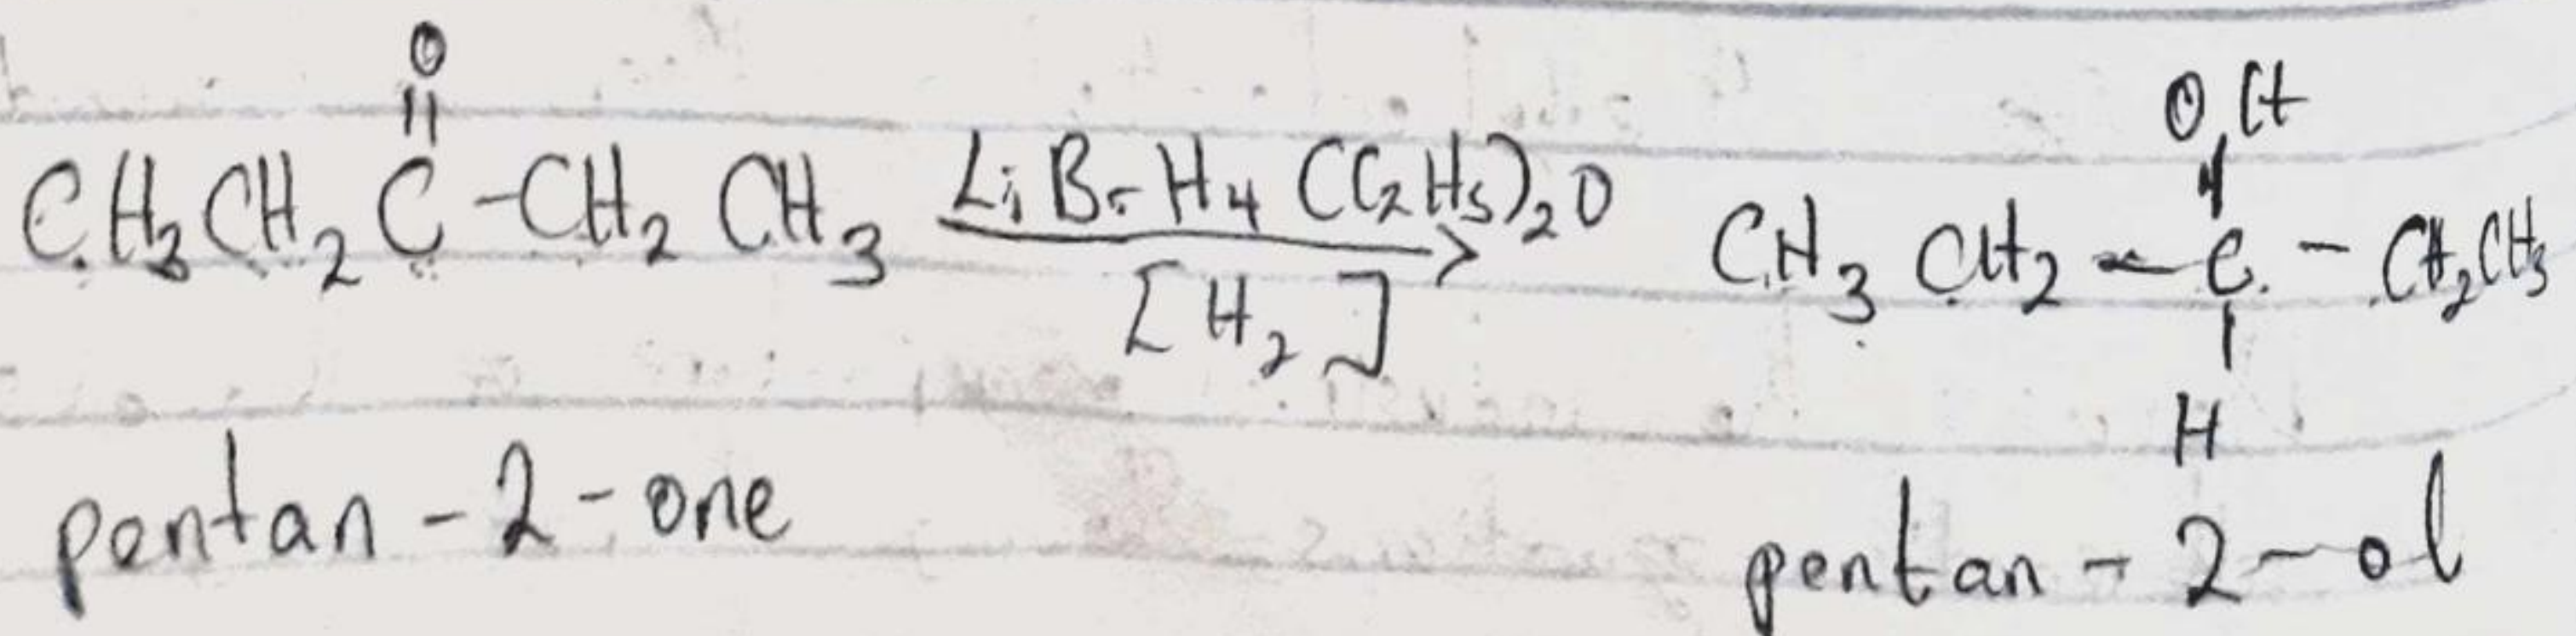 O O,H
||
CH3CH2C-CH2CH3 LiBrH4 (C2H5)2O CH3CH2-C-CH2CH3
[H2]
H
pentan-2-one pentan-2-ol